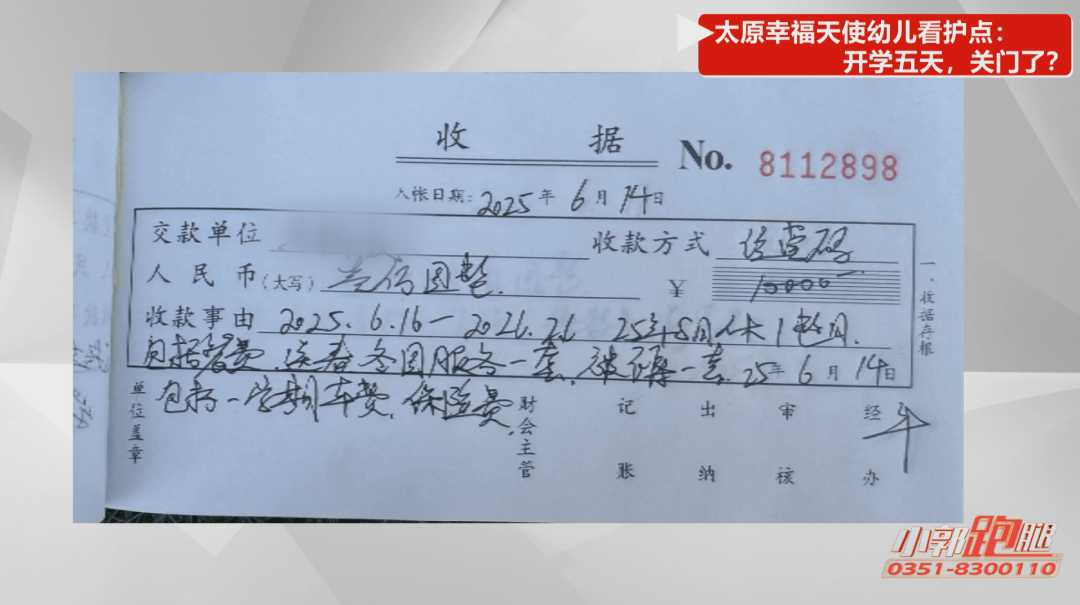 太原幸福天使幼儿看护点:
开学五天，关门了?
收 据 No. 8112898
入帐日期: 2025 年 6 月 14 日
交款单位 收款方式
人民币(大写) 佰圆整 ¥
收款事由 2025.6.16一2026.2.6 25年8月休1整月
包括餐费、送春冬园服各一套、被褥一套 25年 6 月 14日
包括一学期车费、保险费
一、收据存根
单位盖章 财会主管 记账 出纳 审核 经办
小郭跑腿
0351-8300110